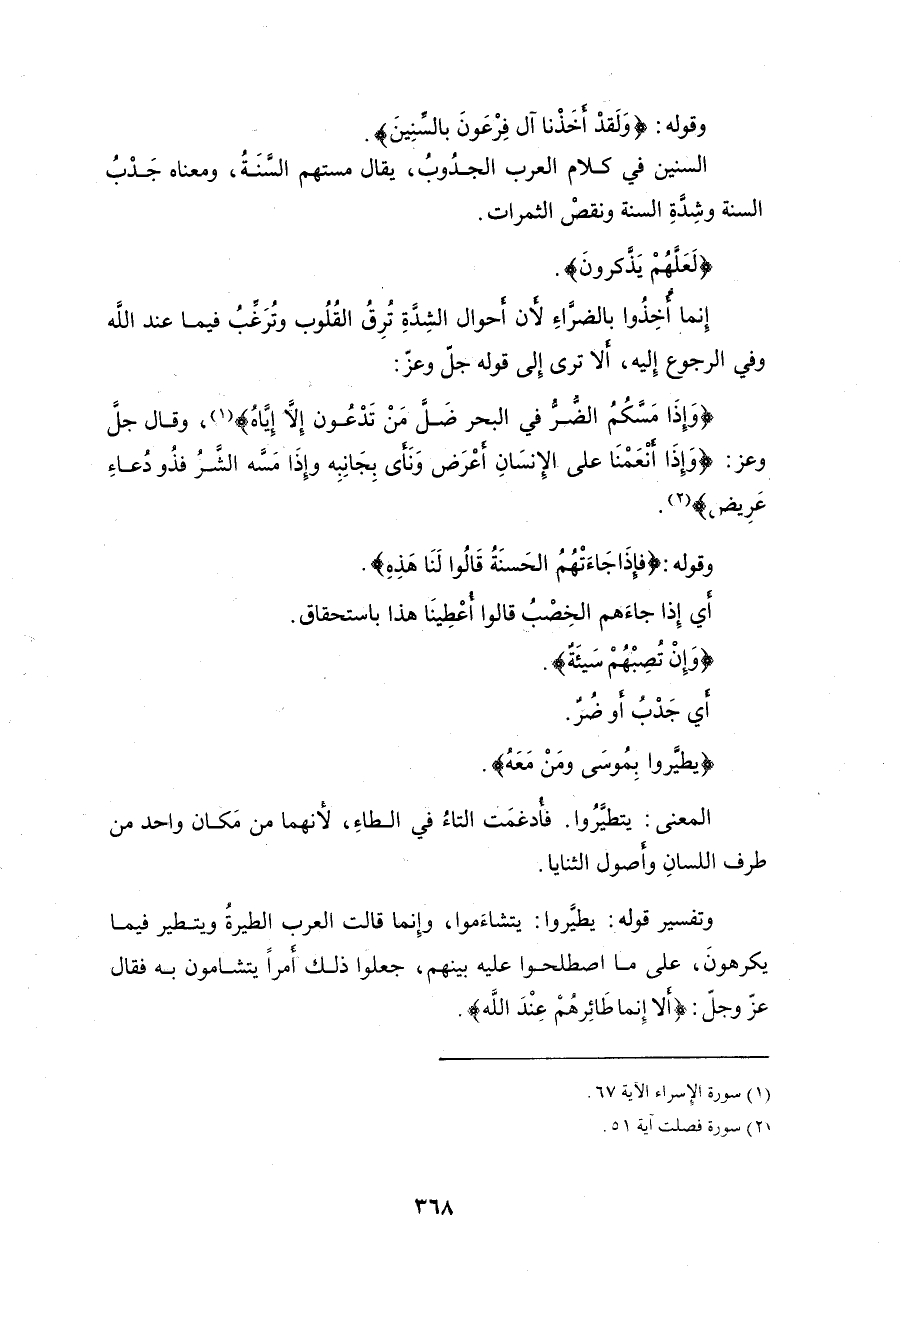 وقوله: ﴿وَلَقدْ أَخَذْنا آل فِرْعَونَ بالسِّنِينَ﴾.
السنين في كلام العرب الجدُوبُ، يقال مستهم السَّنَةُ، ومعناه جَدْبُ
السنة وشِدَّةِ السنة ونقصْ الثمرات.
﴿لَعَلَّهُمْ يَذَّكرونَ﴾.
إنما أُخِذُوا بالضرَّاءِ لأَن أَحوال الشِدَّةِ تُرِقُ القُلُوب وتُرَغِّبُ فيما عند اللَّه
وفي الرجوع إليه، أَلا ترى إلى قوله جلّ وعزّ:
﴿وَإِذَا مَسَّكُمُ الضُّرُّ في البحر ضَلَّ مَنْ تَدْعُون إِلَّا إِيَّاهُ﴾(١)، وقال جلَّ
وعز: ﴿وَإِذَا أَنْعَمْنَا على الإِنسَانِ أَعْرَض وَنَأَى بِجَانِبِه وإذَا مَسَّه الشَّرُ فذُو دُعاءِ
عَرِيضٍ﴾(٢).
وقوله: ﴿فإِذَا جَاءَتْهُمُ الحَسنَةُ قَالُوا لَنَا هَذِهِ﴾.
أَي إِذا جاءَهم الخِصْبُ قالوا أُعْطِينَا هذا باستحقاق.
﴿وَإِنْ تُصِبْهُمْ سَيئَةٌ﴾.
أَي جَدْبُ أَو ضُرٌ.
﴿يطيَّروا بِمُوسَى ومَنْ مَعَهُ﴾.
المعنى: يتطيَّرُوا. فأُدغمَت التاءُ في الطاءِ، لأنهما من مَكان واحد من
طرف اللسانِ وأَصول الثنايا.
وتفسير قوله: يطيَّروا: يتشاءَموا، وإنما قالت العرب الطيرةُ ويتطير فيما
يكرهونَ، على ما اصطلحوا عليه بينهم، جعلوا ذلك أَمراً يتشامون به فقال
عزّ وجلّ: ﴿أَلا إِنما طَائِرهُمْ عِنْدَ اللَّه﴾.
(١) سورة الإسراء الآية ٦٧.
(٢) سورة فصلت آية ٥١.
٣٦٨